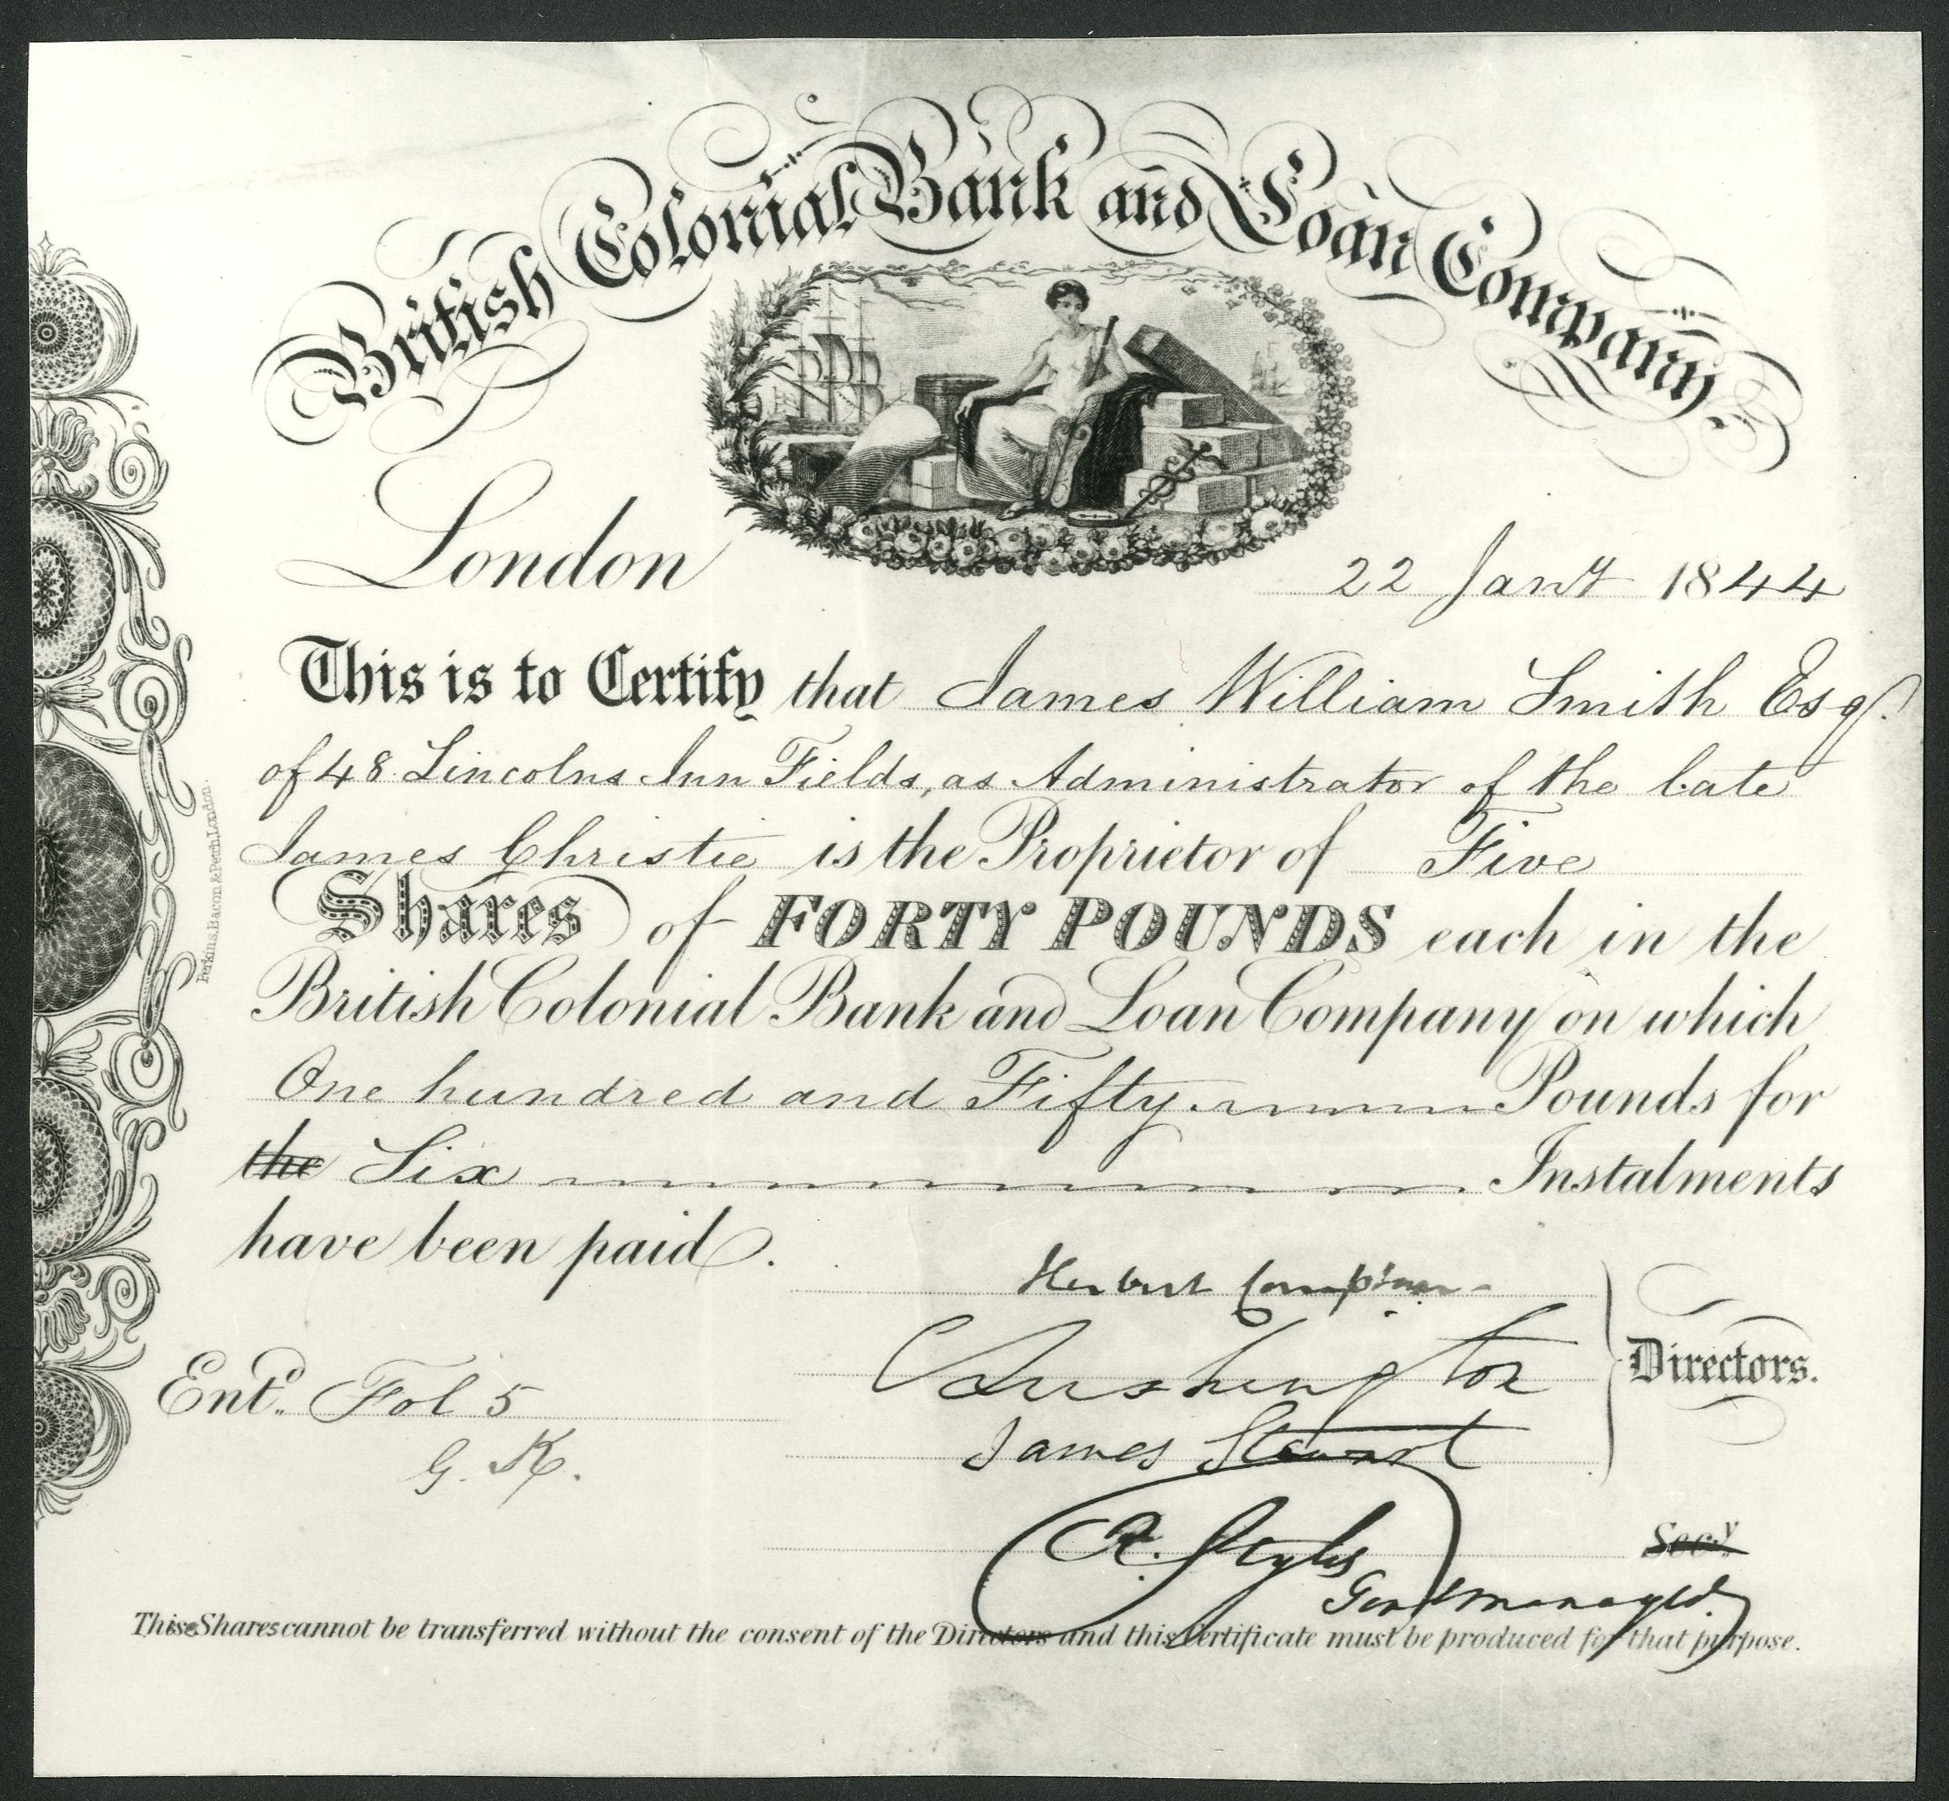 British Colonial Bank and Loan Company.
London
22 Jany 1844
This is to Certify that James William Smith Esqr.
of 48 Lincolns Inn Fields, as Administrator of the late
James Christie is the Proprietor of Five
Shares of FORTY POUNDS each in the
British Colonial Bank and Loan Company on which
One hundred and Fifty Pounds for
the Six Instalments
have been paid.
Herbert Compton
C Lushington
James Stewart
Directors.
Entd. Fol 5
G. K.
A. Styles
Secy.
Genl Manager
These Shares cannot be transferred without the consent of the Directors and this Certificate must be produced for that purpose.
Perkins, Bacon & Petch, London.